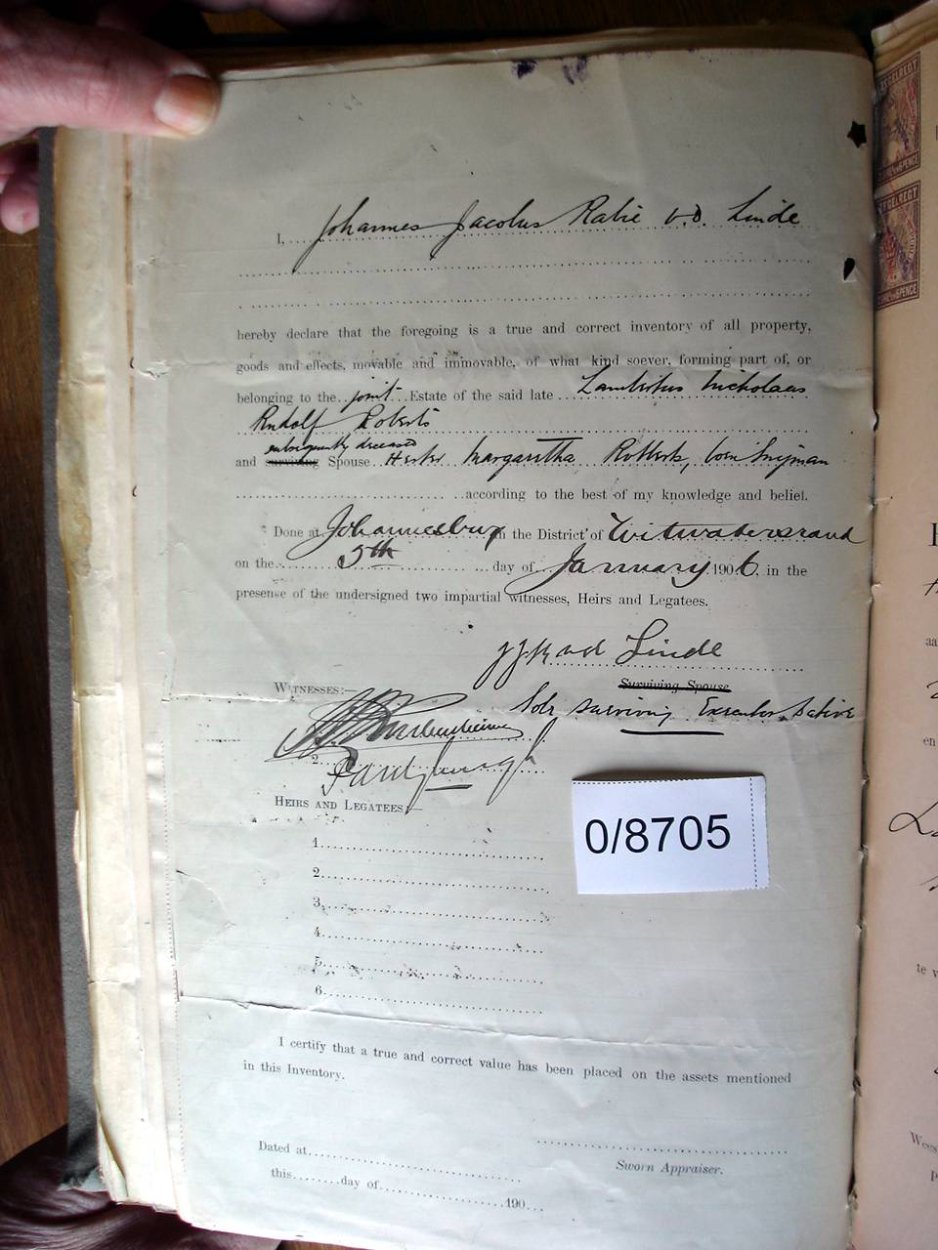 I, Johannes Jacobus Rabie v.d. Linde
hereby declare that the foregoing is a true and correct inventory of all property,
goods and effects, movable and immovable, of what kind soever, forming part of, or
belonging to the joint Estate of the said late Lambertus Nicholaas
Rudolf Roberts
subsequently deceased
and surviving Spouse Hester Margaretha Roberts, born Snyman
according to the best of my knowledge and belief.
Done at Johannesburg in the District of Witwatersrand
on the 5th day of January 1906, in the
presence of the undersigned two impartial witnesses, Heirs and Legatees.
JJR v d Linde
Surviving Spouse
WITNESSES:—
Sole surviving Executor Dative
2.
HEIRS AND LEGATEES:—
0/8705
1.
2.
3.
4.
5.
6.
I certify that a true and correct value has been placed on the assets mentioned
in this Inventory.
Dated at
Sworn Appraiser.
this day of 190